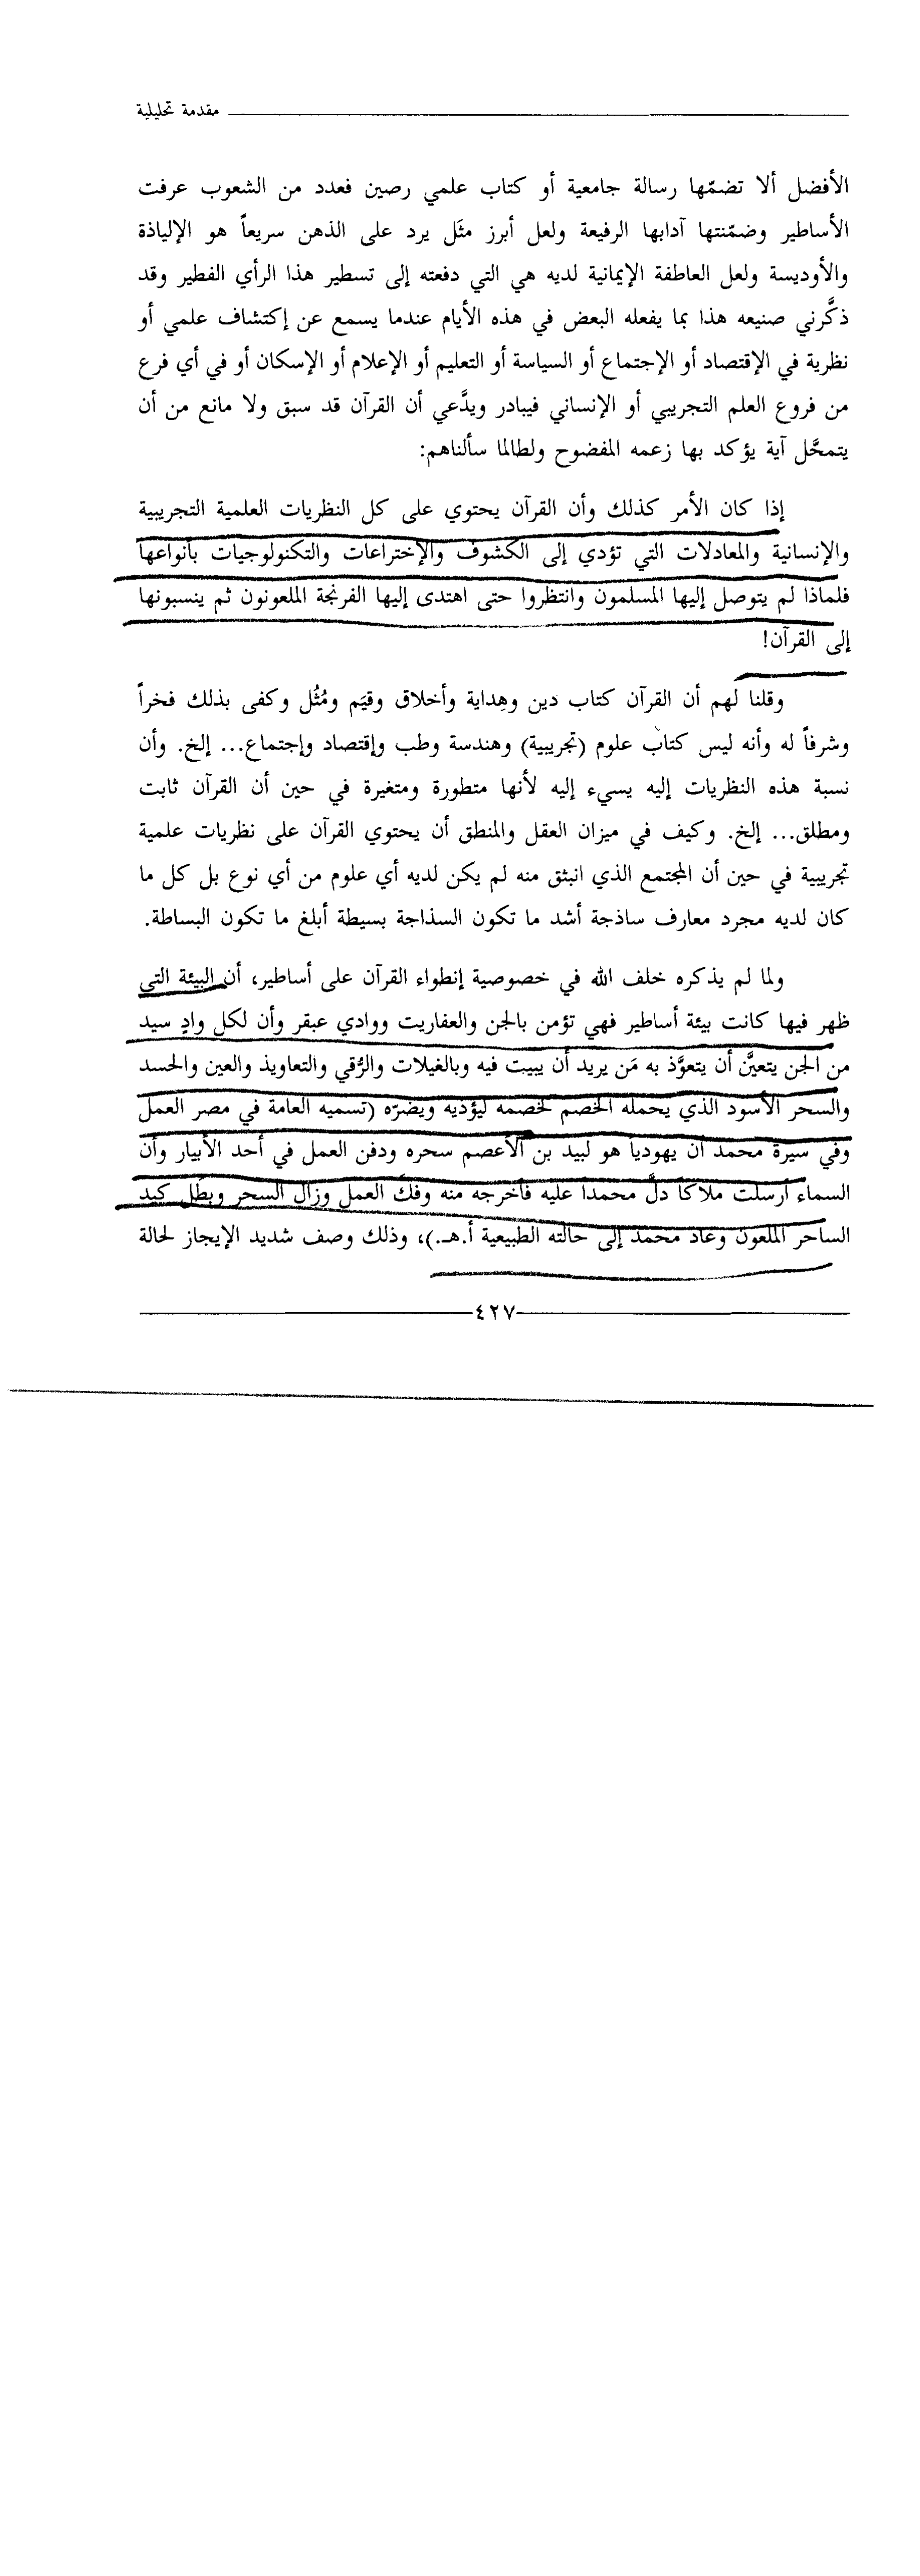 مقدمة تحليلية
الأفضل ألا تضمّها رسالة جامعية أو كتاب علمي رصين فعدد من الشعوب عرفت
الأساطير وضمّنتها آدابها الرفيعة ولعل أبرز مثَل يرد على الذهن سريعاً هو الإلياذة
والأوديسة ولعل العاطفة الإيمانية لديه هي التي دفعته إلى تسطير هذا الرأي الفطير وقد
ذكَّرني صنيعه هذا بما يفعله البعض في هذه الأيام عندما يسمع عن إكتشاف علمي أو
نظرية في الإقتصاد أو الإجتماع أو السياسة أو التعليم أو الإعلام أو الإسكان أو في أي فرع
من فروع العلم التجريبي أو الإنساني فيبادر ويدَّعي أن القرآن قد سبق ولا مانع من أن
يتمحَّل آية يؤكد بها زعمه المفضوح ولطالما سألناهم:
إذا كان الأمر كذلك وأن القرآن يحتوي على كل النظريات العلمية التجريبية
والإنسانية والمعادلات التي تؤدي إلى الكشوف والإختراعات والتكنولوجيات بأنواعها
فلماذا لم يتوصل إليها المسلمون وانتظروا حتى اهتدى إليها الفرنجة الملعونون ثم ينسبونها
إلى القرآن!
وقلنا لهم أن القرآن كتاب دين وهِداية وأخلاق وقيَم ومُثُل وكفى بذلك فخراً
وشرفاً له وأنه ليس كتاب علوم (تجريبية) وهندسة وطب وإقتصاد وإجتماع... إلخ. وأن
نسبة هذه النظريات إليه يسيء إليه لأنها متطورة ومتغيرة في حين أن القرآن ثابت
ومطلق... إلخ. وكيف في ميزان العقل والمنطق أن يحتوي القرآن على نظريات علمية
تجريبية في حين أن المجتمع الذي انبثق منه لم يكن لديه أي علوم من أي نوع بل كل ما
كان لديه مجرد معارف ساذجة أشد ما تكون السذاجة بسيطة أبلغ ما تكون البساطة.
ولما لم يذكره خلف الله في خصوصية إنطواء القرآن على أساطير، أن البيئة التي
ظهر فيها كانت بيئة أساطير فهي تؤمن بالجن والعفاريت ووادي عبقر وأن لكل وادٍ سيد
من الجن يتعيَّن أن يتعوَّذ به مَن يريد أن يبيت فيه وبالغيلات والرُّقي والتعاويذ والعين والحسد
والسحر الأسود الذي يحمله الخصم لخصمه ليؤديه ويضرّه (تسميه العامة في مصر العمل
وفي سيرة محمد أن يهودياً هو لبيد بن الأعصم سحره ودفن العمل في أحد الأبيار وأن
السماء أرسلت ملاكاً دلَّ محمداً عليه فأخرجه منه وفكّ العمل وزال السحر وبطَل كيد
الساحر الملعون وعاد محمد إلى حالته الطبيعية أ.هـ.)، وذلك وصف شديد الإيجاز لحالة
٤٢٧